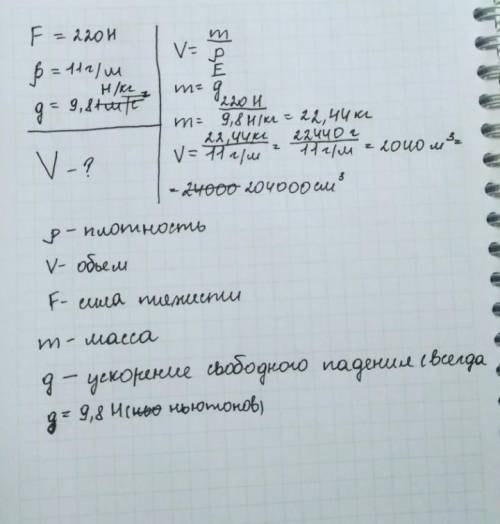 F = 220 Н
ρ = 11 г/м
g = 9,8 Н/кг
V - ?
V = m/ρ
m = F/g
m = 220 Н / 9,8 Н/кг = 22,44 кг
V = 22,44 кг / 11 г/м = 22440 г / 11 г/м = 2040 м³ =
= 24000 204000 см³
ρ - плотность
V - обьем
F - сила тяжести
m - масса
g - ускорение свободного падения (всегда
g = 9,8 Н (нью ньютонов)